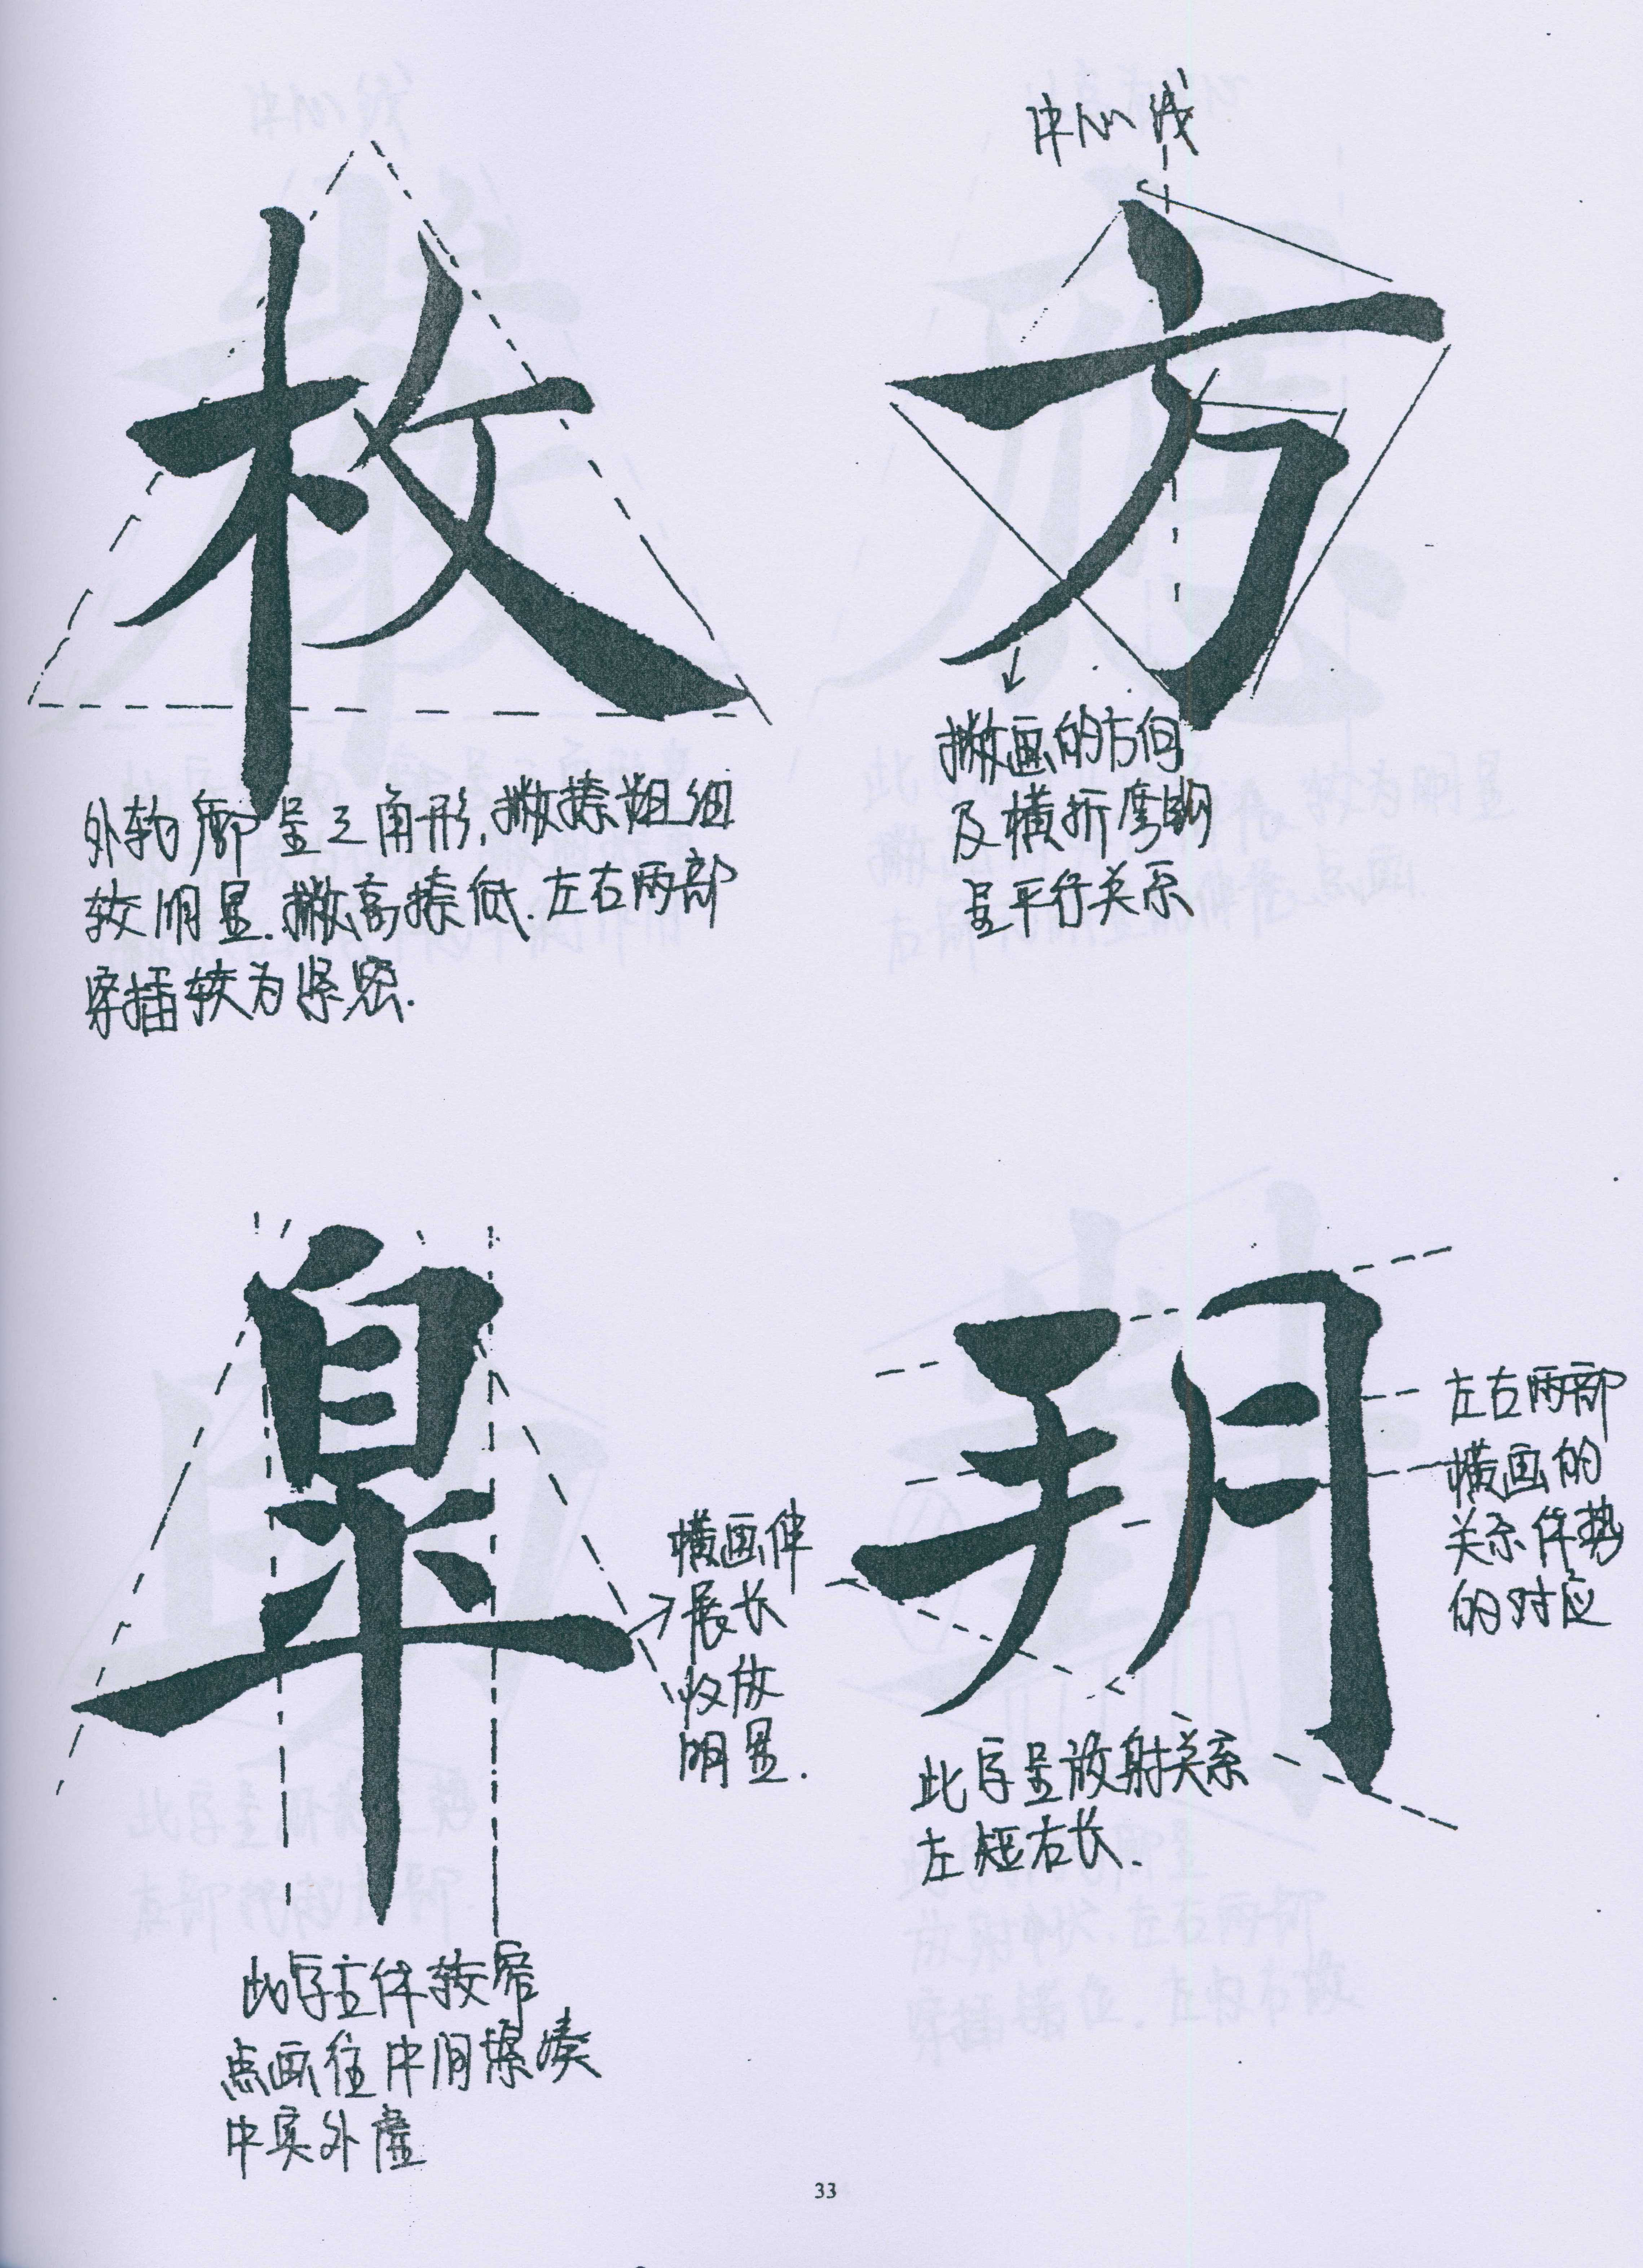 枚
外轮廓呈三角形,撇捺粗细
较明显.撇高捺低.左右两部
穿插较为紧密.
中心线
方
撇画的方向
及横折弯钩
呈平行关系
皐
横画伸
展长
收放
明显.
此字主体较窄
点画往中间攒凑
中实外虚
玥
左右两部
横画的
关系体势
的对应
此字呈放射关系
左短右长.
33